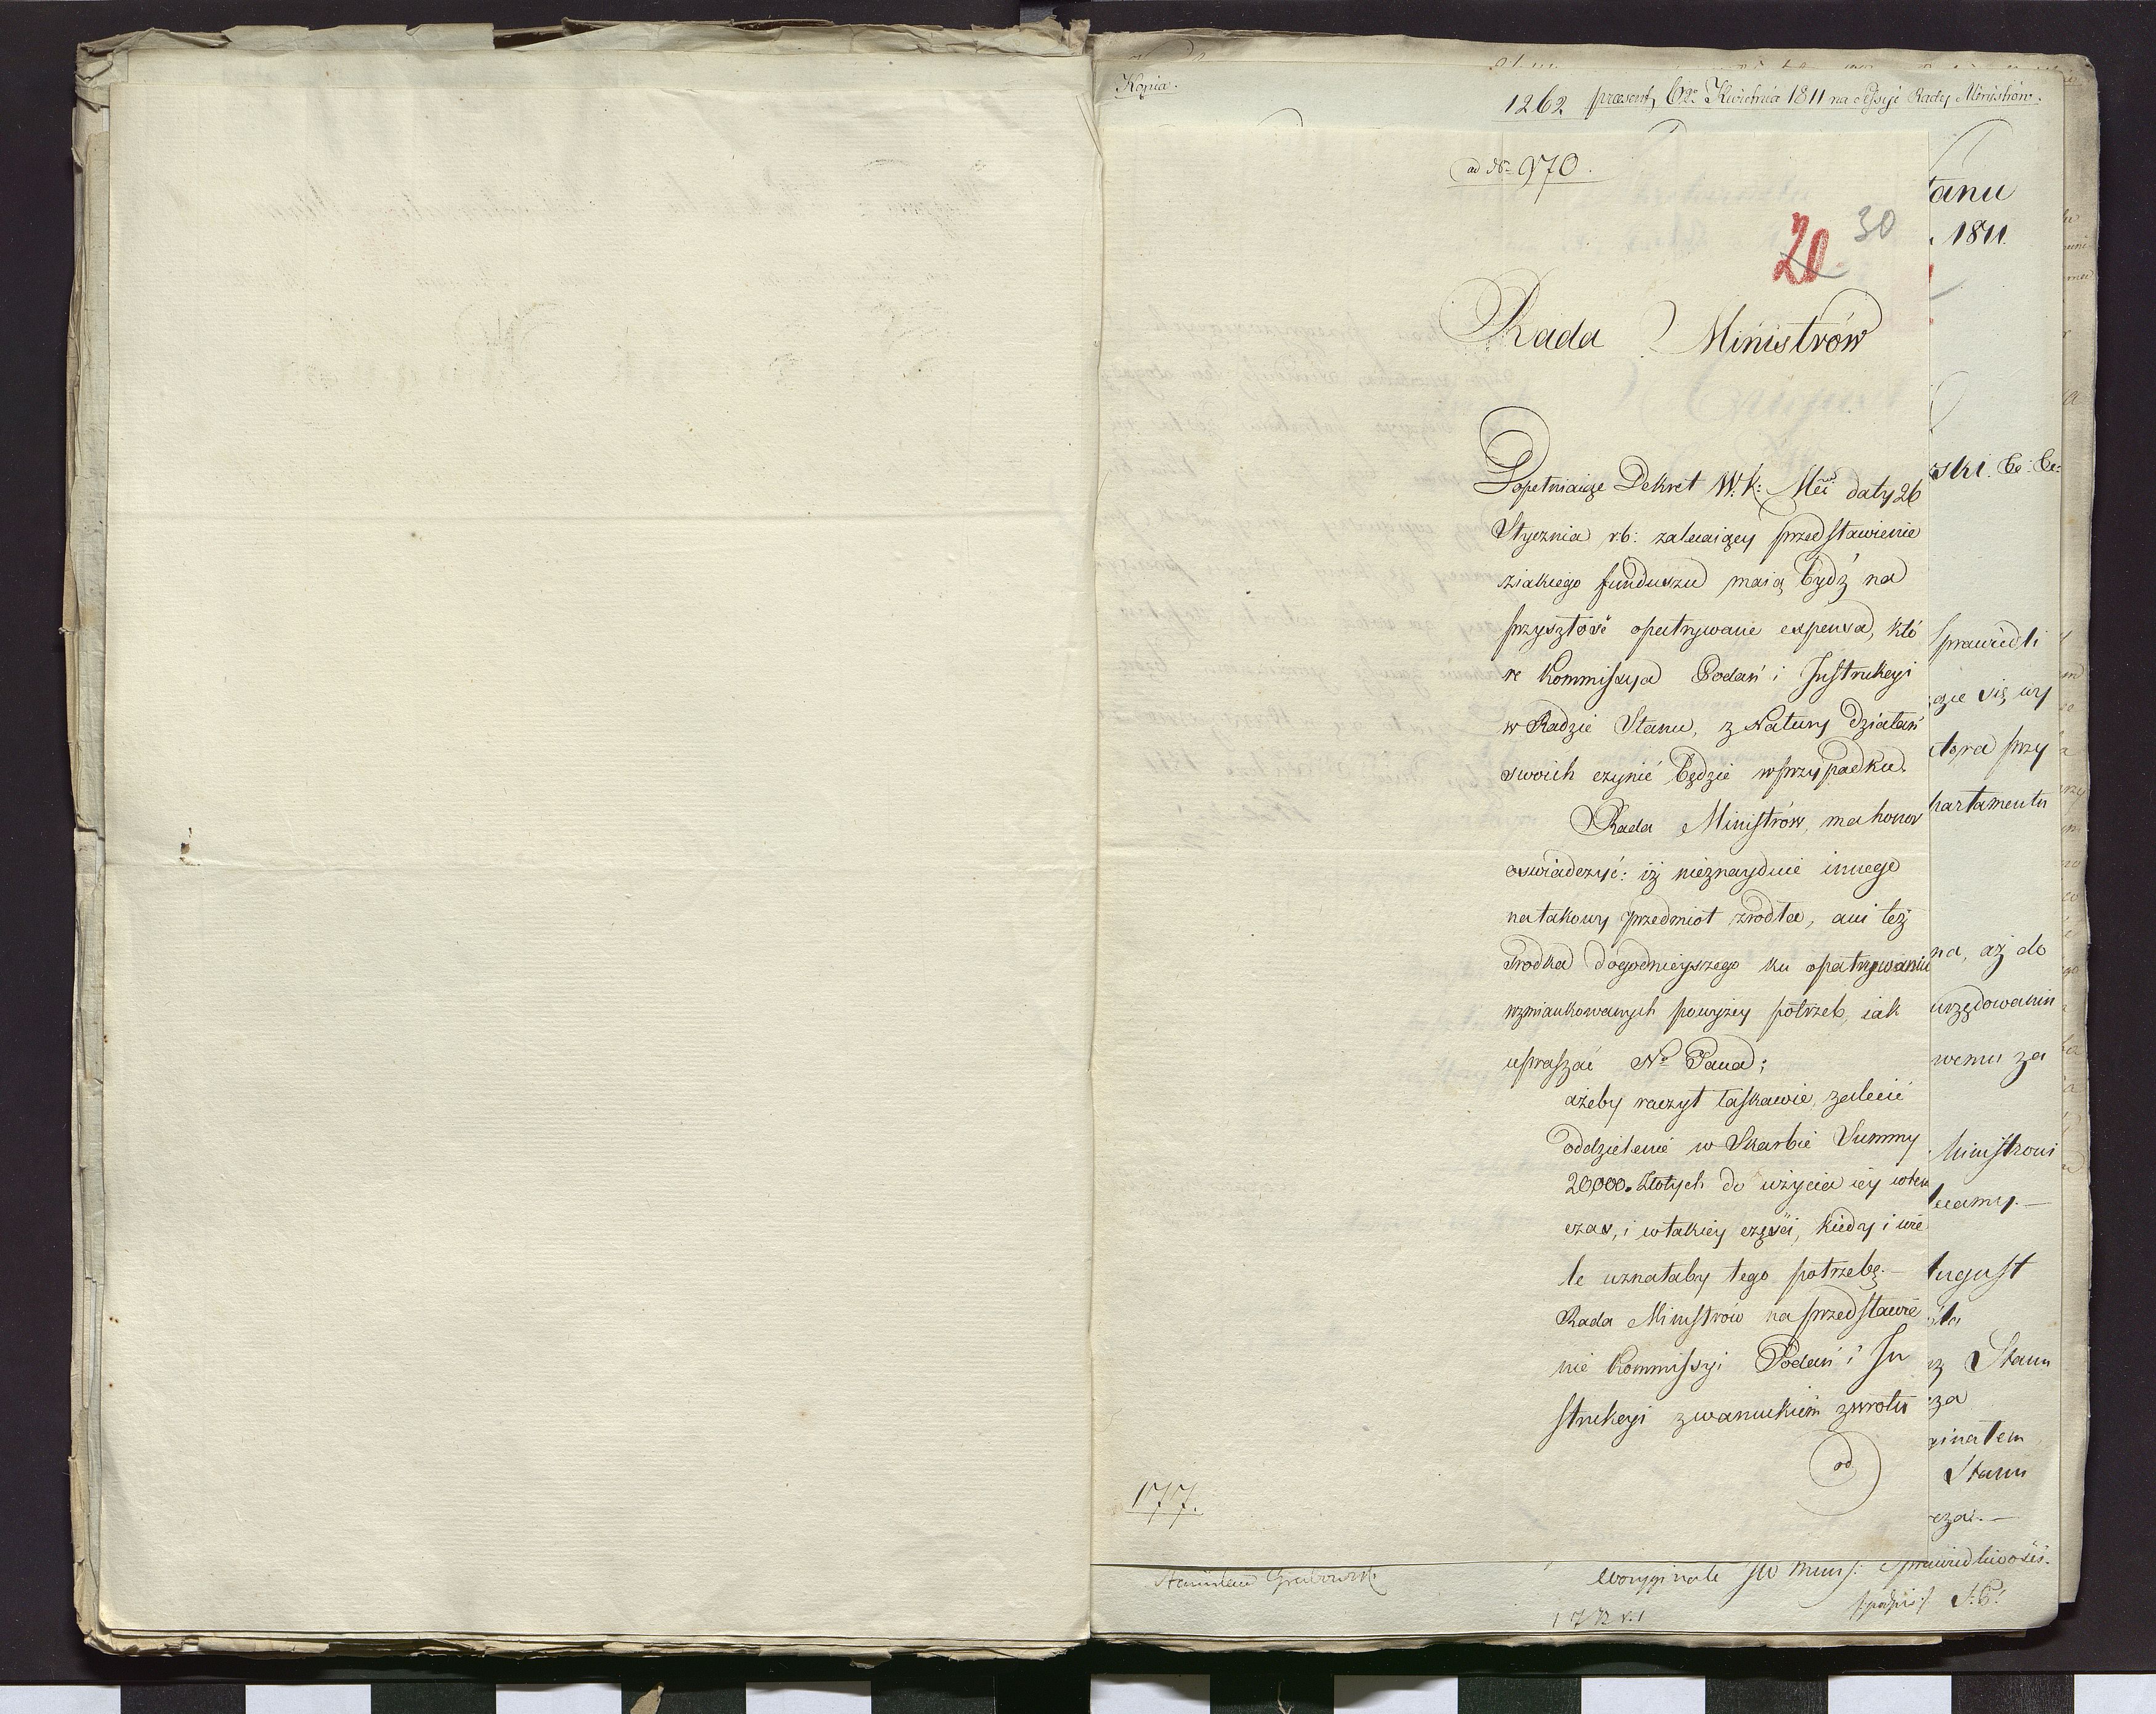 Kopia.
1262 praesent, 6go Kwietnia 1811 na Sessyi Rady Ministrów.
ad No 970.
20 30
Rada Ministrów
Dopełniaiąc Dekret W. K: Mci daty 26
Stycznia r.b: zalecaiący przedstawienie
ziakiego funduszu maią bydź na
przyszłość opatrywane expensa, któ
re Kommissya Podań i Instrukcyi
w Radzie Stanu, z Natury działań
swoich czynić będzie w przypadku.
Rada Ministrów, ma honor
oswiadczyć: iż nieznayduie innego
na takowy przedmiot zrodła, ani też
srodka dogodnieyszego ku opatrywaniu
wzmiankowanych powyżey potrzeb, iak
upraszać No Pana;
ażeby raczył łaskawie, zalecić
oddzielenie w Skarbie Summy
20,000. Złotych do użycia iey wten
czas, i w takiey części, kiedy i wie
le uznałaby tego potrzebę.—
Rada Ministrów na przedstawie
nie Kommissyi Podań i In
strukcyi z warunkiem zwrotu
od
177.
tanu
1811.
ski. &c: &c:
Sprawiedli
się wy
przy
partamentu
na, aż do
urzędowaniu
wemu za
Ministrowi
lecamy.—
August
Stanu
za
ginałem
Stanu
cza.—
Stanisław Grabowski
w oryginale JW Minis: Sprawiedliwości.
/podpis:/